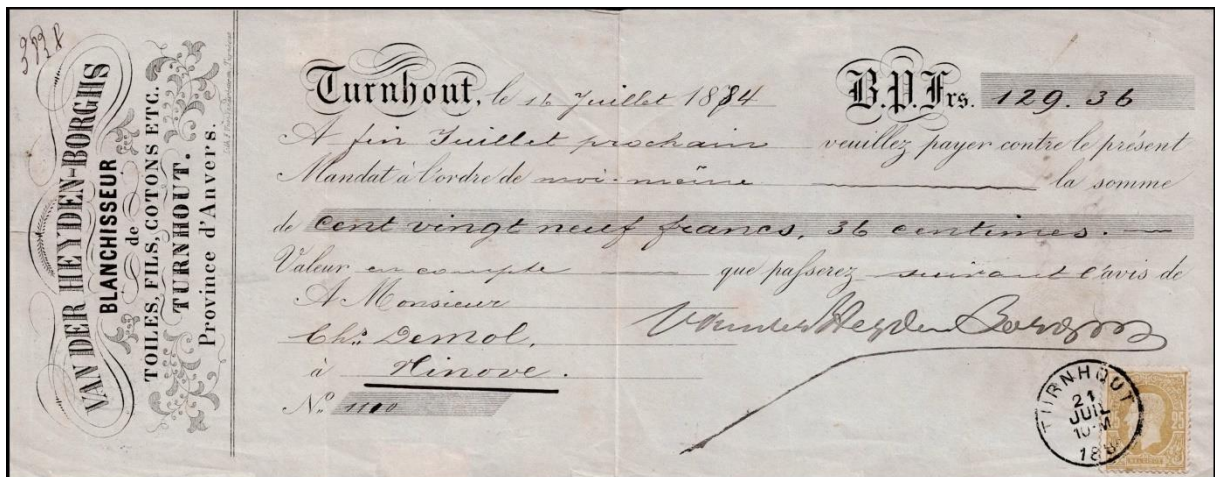 3128
VAN DER HEYDEN-BORGHS
BLANCHISSEUR
de
TOILES, FILS, COTONS ETC.
TURNHOUT.
Province d'Anvers.
Turnhout, le 16 Juillet 1884 B.P.Frs. 129.36
A fin Juillet prochain veuillez payer contre le présent
Mandat à l'ordre de moi-même la somme
de cent vingt neuf francs, 36 centimes.
Valeur en compte que passerez suivant l'avis de
A Monsieur
Chs. Demol, Vander Heyden Borghs
à Ninove.
No. 1110
TURNHOUT
21
JUIL
10-M
188
25